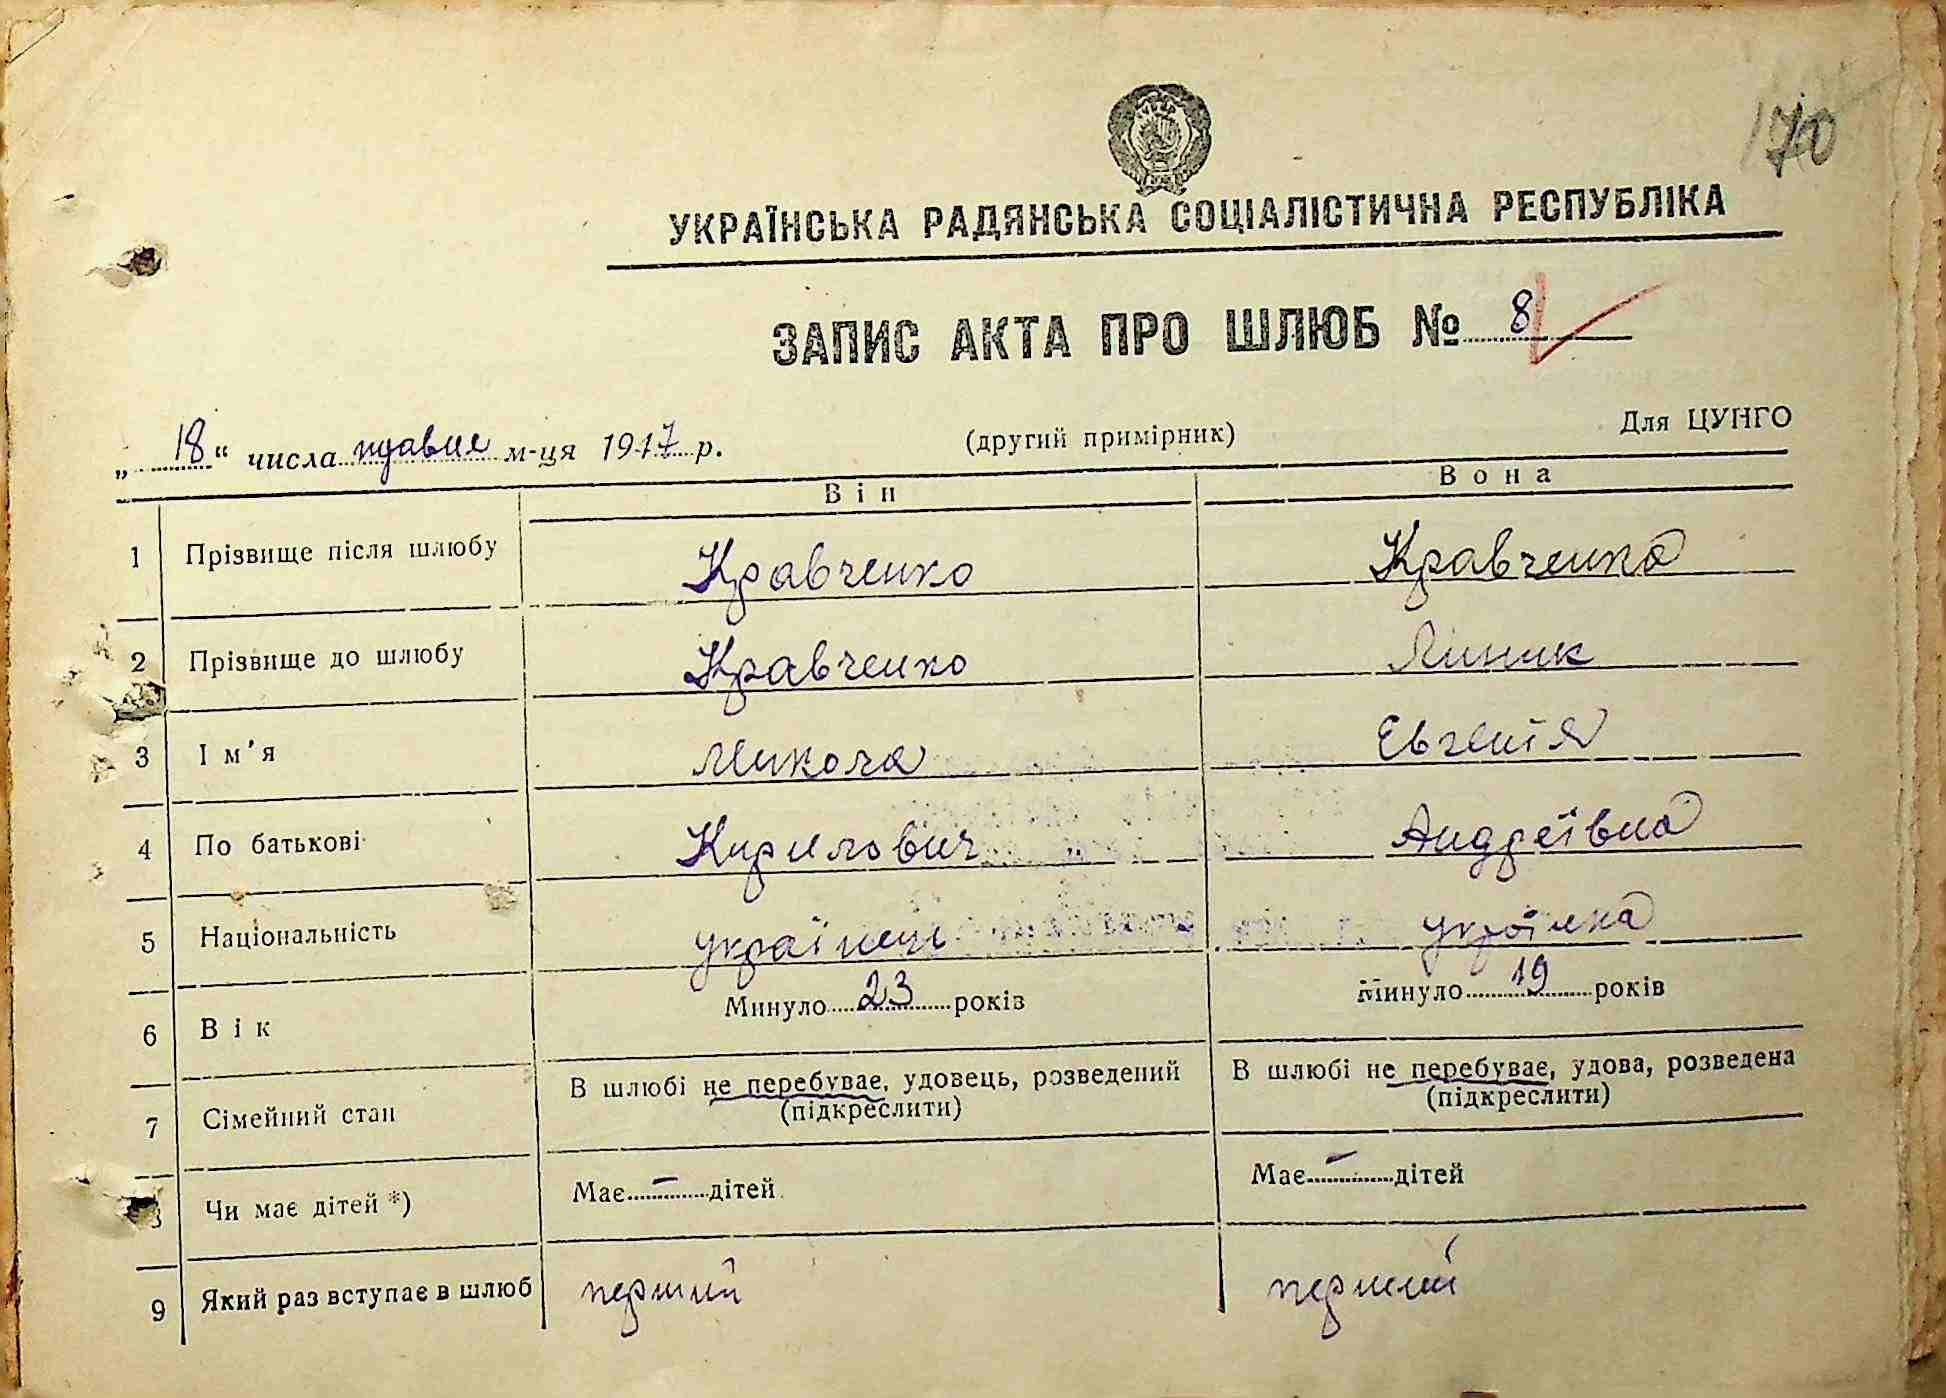 170
УКРАЇНСЬКА РАДЯНСЬКА СОЦІАЛІСТИЧНА РЕСПУБЛІКА
ЗАПИС АКТА ПРО ШЛЮБ № 8
„18“ числа травня м-ця 1947 р. (другий примірник) Для ЦУНГО
Він Вона
1 Прізвище після шлюбу Кравченко Кравченко
2 Прізвище до шлюбу Кравченко Линик
3 Ім'я Микола Евгенія
4 По батькові Кирилович Андреївна
5 Національність українець українка
6 Вік Минуло 23 років Минуло 19 років
7 Сімейний стан В шлюбі не перебуває, удовець, розведений В шлюбі не перебуває, удова, розведена
(підкреслити) (підкреслити)
8 Чи має дітей *) Має - дітей Має - дітей
9 Який раз вступає в шлюб перший перший